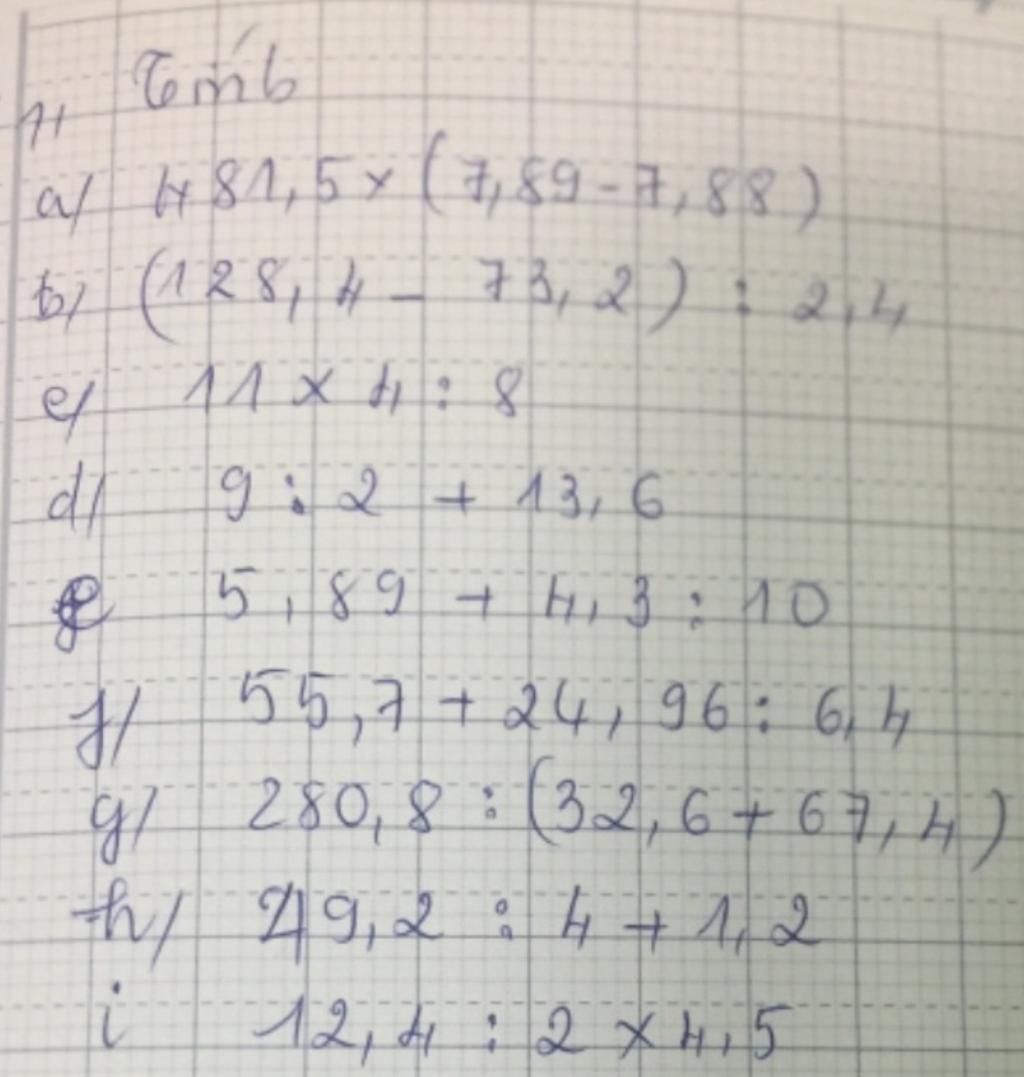 Tính
1,
a/ 481,5 × (7,89 - 7,88)
b/ (128,4 - 73,2) : 2,4
c/ 11 × 4 : 8
d/ 9 : 2 + 13,6
e 5,89 + 4,3 : 10
f/ 55,7 + 24,96 : 6,4
g/ 280,8 : (32,6 + 67,4)
h/ 49,2 : 4 + 1,2
i 12,4 : 2 × 4,5